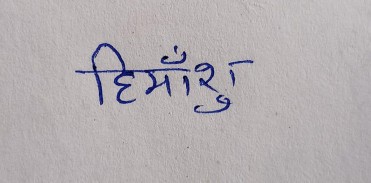 हिमाँशु